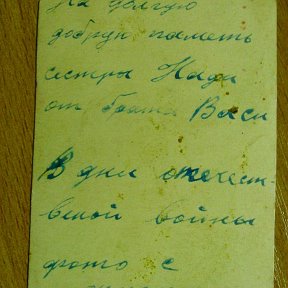 На долгую
добрую память
сестры Нади
от брата Васи
В дни отечест-
веной войны
фото с